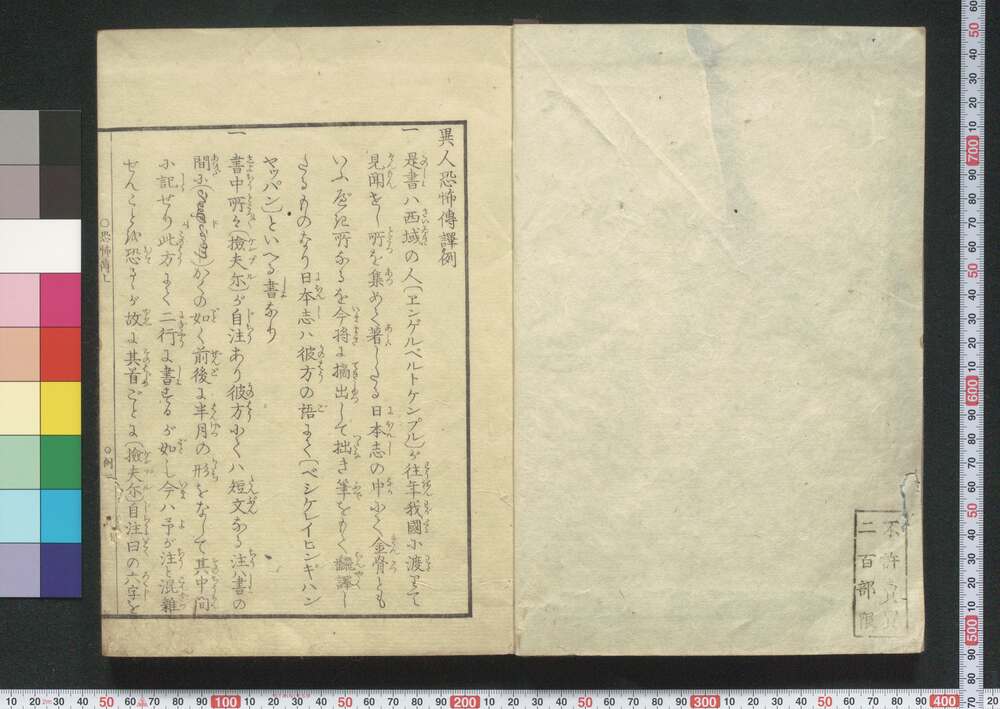 不許賣買
二百部限
異人恐怖傳譯例
一 是書ハ西域の人(ヱンゲルベルトケンプル)が往年我國に渡りて
見聞をし所を集めて著したる日本志の中にて金骨とも
いふべき所なるを今将に摘出して拙き筆をもて飜譯し
たるものなり日本志ハ彼方の語にて(ベシケレイヒンギハン
ヤッパン)といへる書なり
一 書中所々(撿夫尓)が自注あり彼方にてハ短文なる注ハ書の
間に()かくの如く前後に半月の形をなして其中間
に記せり此方にて二行に書するが如し今ハ予が注と混雑
せんことを恐るゝが故に其首ごとに(撿夫尓)自注曰の六字を
○恐怖傳上
○例